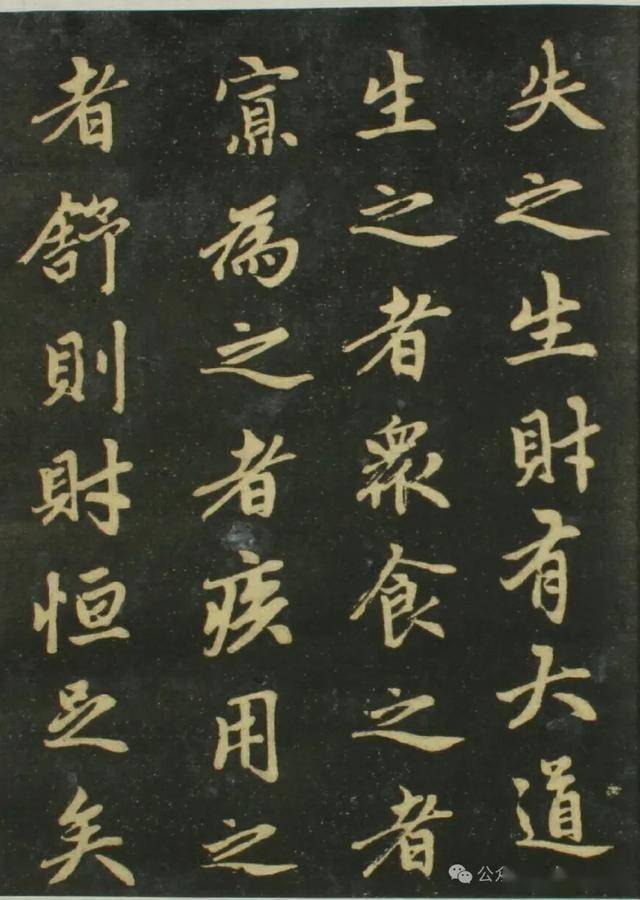 失之生財有大道
生之者眾食之者
寡為之者疾用之
者舒則財恒足矣
公众